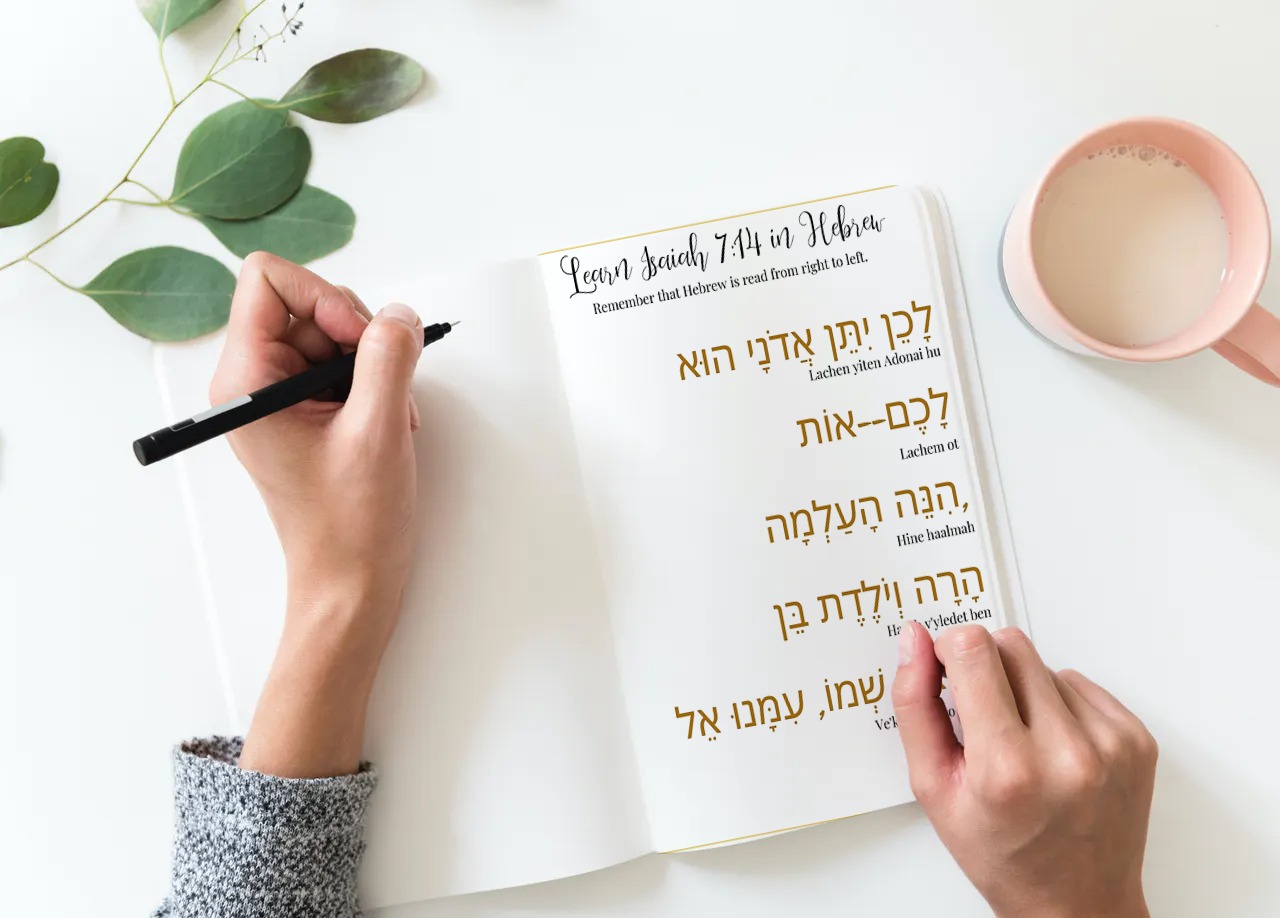 Learn Isaiah 7:14 in Hebrew
Remember that Hebrew is read from right to left.
לָכֵן יִתֵּן אֲדֹנָי הוּא
Lachen yiten Adonai hu
לָכֶם--אוֹת
Lachem ot
הִנֵּה הָעַלְמָה,
Hine haalmah
הָרָה וְיֹלֶדֶת בֵּן
v'yledet ben
שְׁמוֹ, עִמָּנוּ אֵל